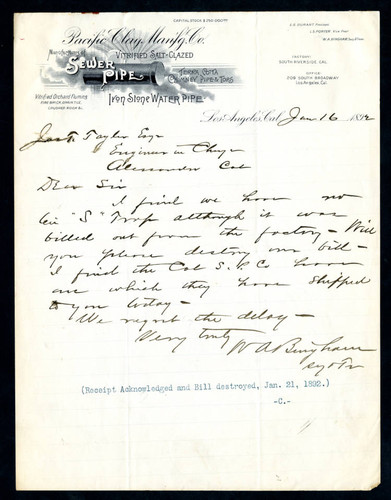 CAPITAL STOCK $250,000
Pacific Clay Manfg. Co.
Manufacturers of
VITRIFIED SALT-GLAZED
SEWER PIPE
TERRA COTTA
CHIMNEY PIPE & TOPS
Vitrified Orchard Fluming
FIRE BRICK, DRAIN TILE,
Iron Stone Water Pipe
FACTORY:
SOUTH RIVERSIDE CAL.
OFFICE:
SOUTH BROADWAY
Los Angeles, Cal.
Los Angeles, Cal Jan 16 1892
Jas T. Taylor Esq
Engineer in Charge
Alessandro Cal
Dear Sir
I find we have no
"S" Trap although it was
billed out from the factory - Will
you please destroy our bill -
I find the Cal S. P. Co have
one which they have shipped
to you today -
We regret the delay -
Very truly
W A Bingham
(Receipt Acknowledged and Bill destroyed, Jan. 21, 1892.)
-C.-